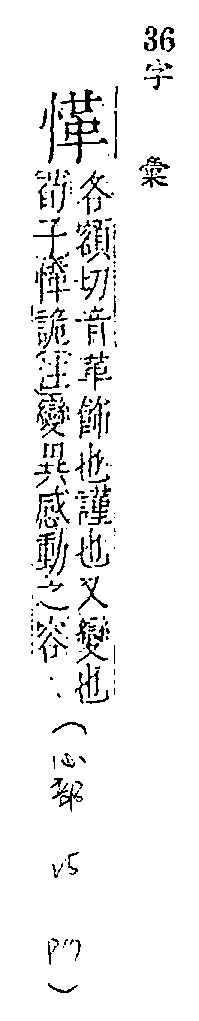 36字彙
愅
各額切音革飾也謹也又變也
荀子愅詭注變異感動之容
(心部 V5 P17)